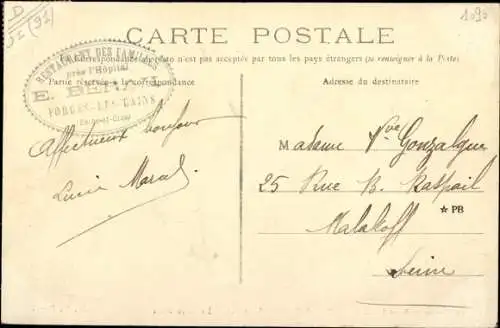 D
I (91)
1090
CARTE POSTALE
La Correspondance au recto n'est pas acceptée par tous les pays étrangers (se renseigner à la Poste)
Partie réservée à la correspondance
Adresse du destinataire
RESTAURANT DES FAMILLES
près l'Hôpital
E.
FORGES-LES-BAINS
(Seine-et-Oise)
Affectueux bonjour
Lucie Marcel
Madame Vve Gonzalgue
25 Rue B. Raspail
★ PB
Malakoff
Seine